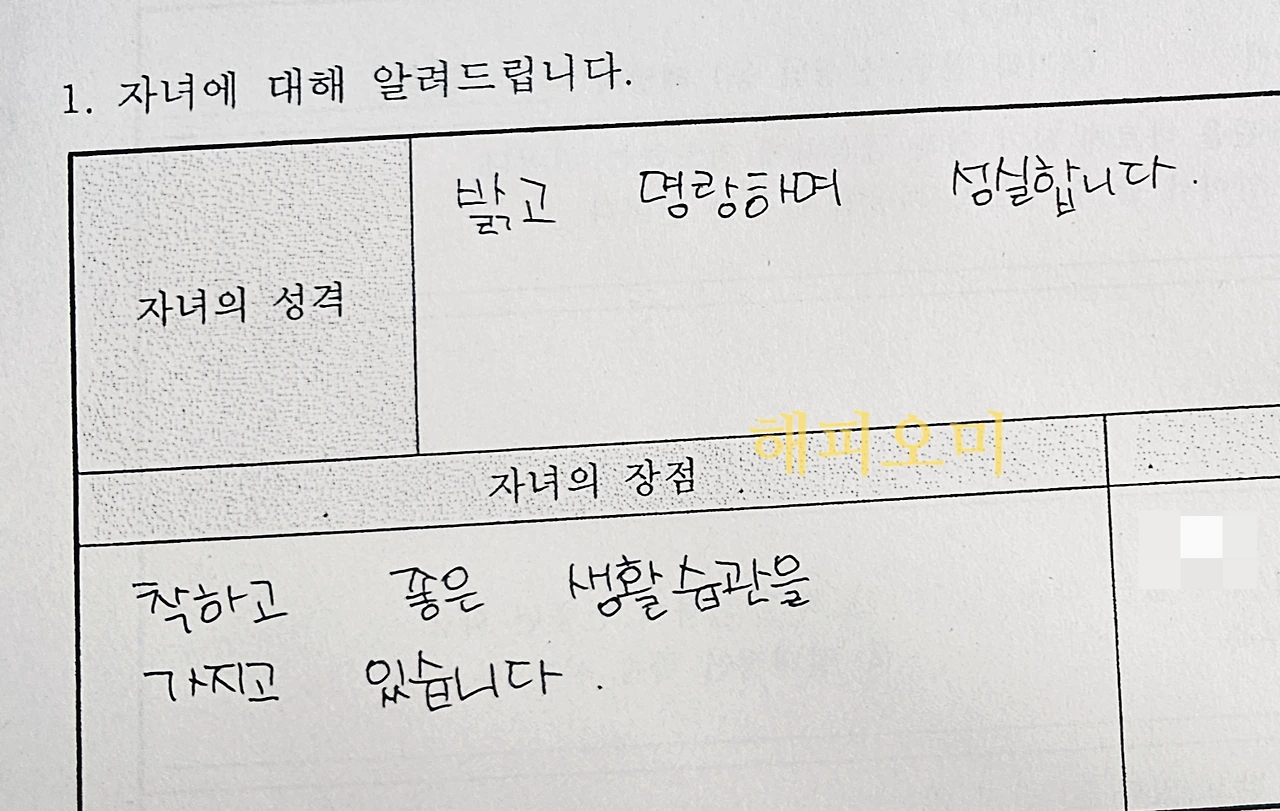 1. 자녀에 대해 알려드립니다.
자녀의 성격
밝고 명랑하며 성실합니다.
해피오미
자녀의 장점
착하고 좋은 생활습관을
가지고 있습니다.